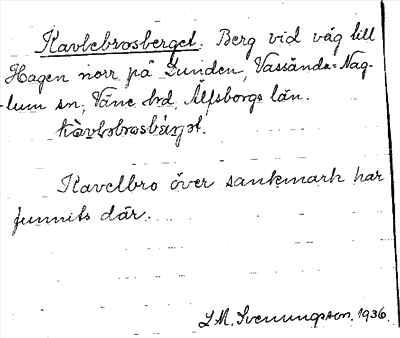 Kavlebrosberget. Berg vid väg till
Hagen norr på Lunden, Vassända-Nag-
lum sn, Väne hd, Älfsborgs län.
Kavelbro över sankmark har
funnits där.
L M. Svenungsson, 1936.